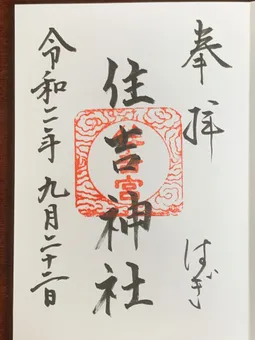 奉拝
はぎ
住吉神社
令和二年 九月二十二日